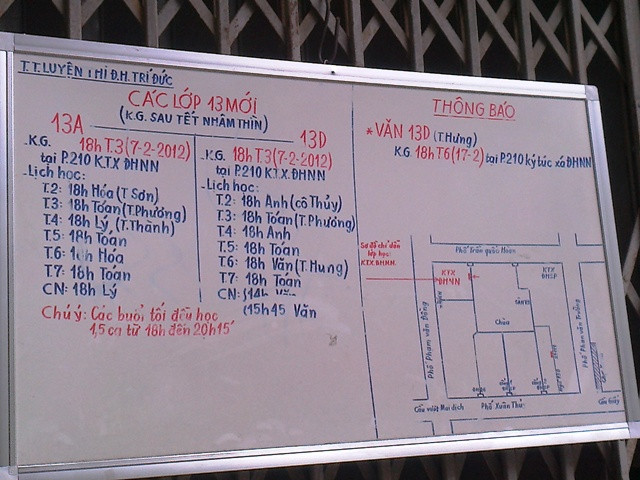 T.T. LUYỆN THI Đ.H. TRÍ ĐỨC
CÁC LỚP 13 MỚI
(K.G. SAU TẾT NHÂM THÌN)
13A
- K.G. 18h T.3 (7-2-2012)
tại P.210 KTX ĐHNN
- Lịch học:
T.2: 18h Hóa (T Sơn)
T.3: 18h Toán (T.Phương)
T.4: 18h Lý (T.Thành)
T.5: 18h Toán
T.6: Hóa
T.7: 18h Toán
CN: 18h Lý
13D
- K.G. 18h T.3 (7-2-2012)
tại P.210 KTX.ĐHNN
- Lịch học:
T.2: 18h Anh (cô Thủy)
T.3: 18h Toán (T.Phương)
T.4: 18h Anh
T.5: 18h Toán
T.6: 18h Văn (T.Hung)
T.7: 18h Toán
CN: 14h
15h45 Văn
Chú ý: Các buổi tối đều học
1,5 ca từ 18h đến 20h15'
THÔNG BÁO
* VĂN 13D (T.Hưng)
K.G. 18h T6 (17-2) tại P.210 ký túc xá ĐHNN
Sơ đồ chỉ dẫn
lớp học:
KTX.ĐHNN
Phố Trần Quốc Hoàn
KTX
ĐHNN
KTX
ĐHSP
Phố Phạm Văn Đồng
Chùa
Cầu vượt Mai dịch
Phố Xuân Thủy
Cầu Giấy